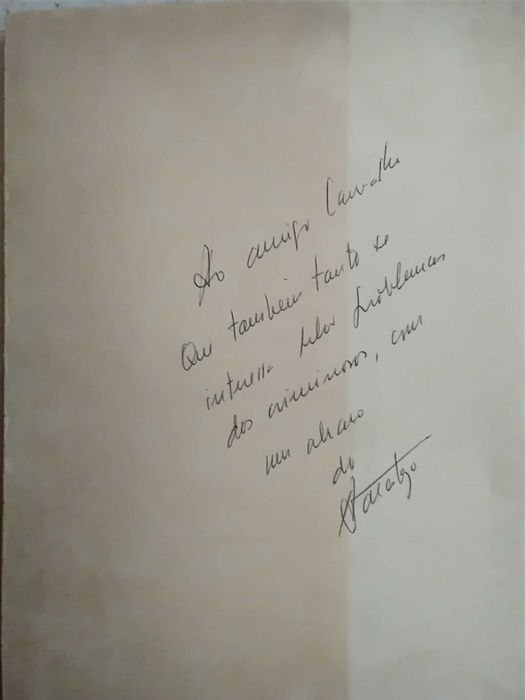 Ao amigo Carvalho
Que também tanto se
interessa pelos problemas
dos criminosos, com
um abraço
do